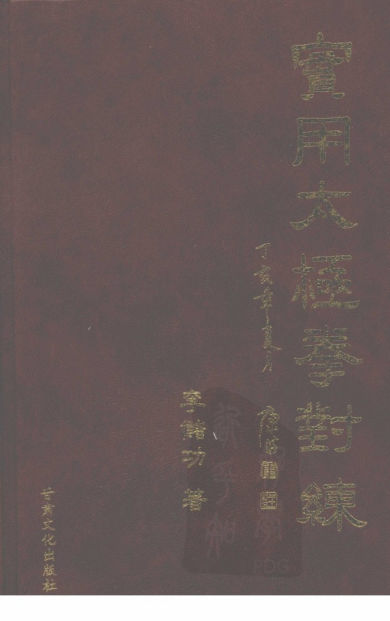 實用太極拳對練
丁亥年夏月
李儲功 著
甘肃文化出版社
PDG